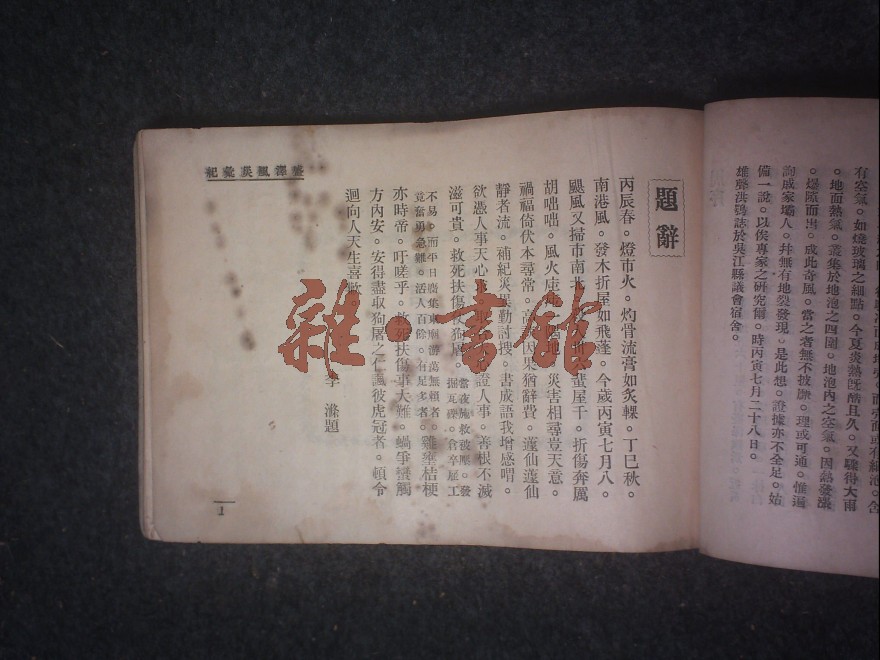 有空氣。如燒玻璃之細點。今夏炎熱旣酷且久。又驟得大雨
。地面熱氣。叢集於地泡之四圍。地泡內之空氣。因熱發漲
。爆隙而出。成此奇風。當之者無不披靡。理或可通。惟遍
詢成家壩人。幷無有地裂發現。是此想。證據亦不全足。姑
備一說。以俟專家之研究爾。時丙寅七月二十八日。
雄聲洪鶴誌於吳江縣議會宿舍。
題辭
丙辰春。燈市火。灼骨流膏如炙輠。丁巳秋。
南港風。發木折屋如飛蓬。今歲丙寅七月八。
颶風又掃市南北。屋千。折傷奔厲
胡咄咄。風火地。災害相尋豈天意。
禍福倚伏本尋常。因果猶辭費。蘧仙蘧仙
靜者流。補紀災異勤討搜。書成語我增感喟。
欲憑人事天心證人事。善根不滅
滋可貴。救死扶傷狗屠。當夜施救被壓。發掘瓦礫。食卒雇工
不易。而平日麕集東廟游蕩無賴者。
竟奮勇急難。活人百餘。有足多者。雞壅桔梗
亦時帝。吁嗟乎。救死扶傷事大難。蝸爭蠻觸
方內安。安得盡取狗屠之仁諷彼虎冠者。頓令
迴向人天生喜歡。
題
盛澤風災彙記
1
雜·書館